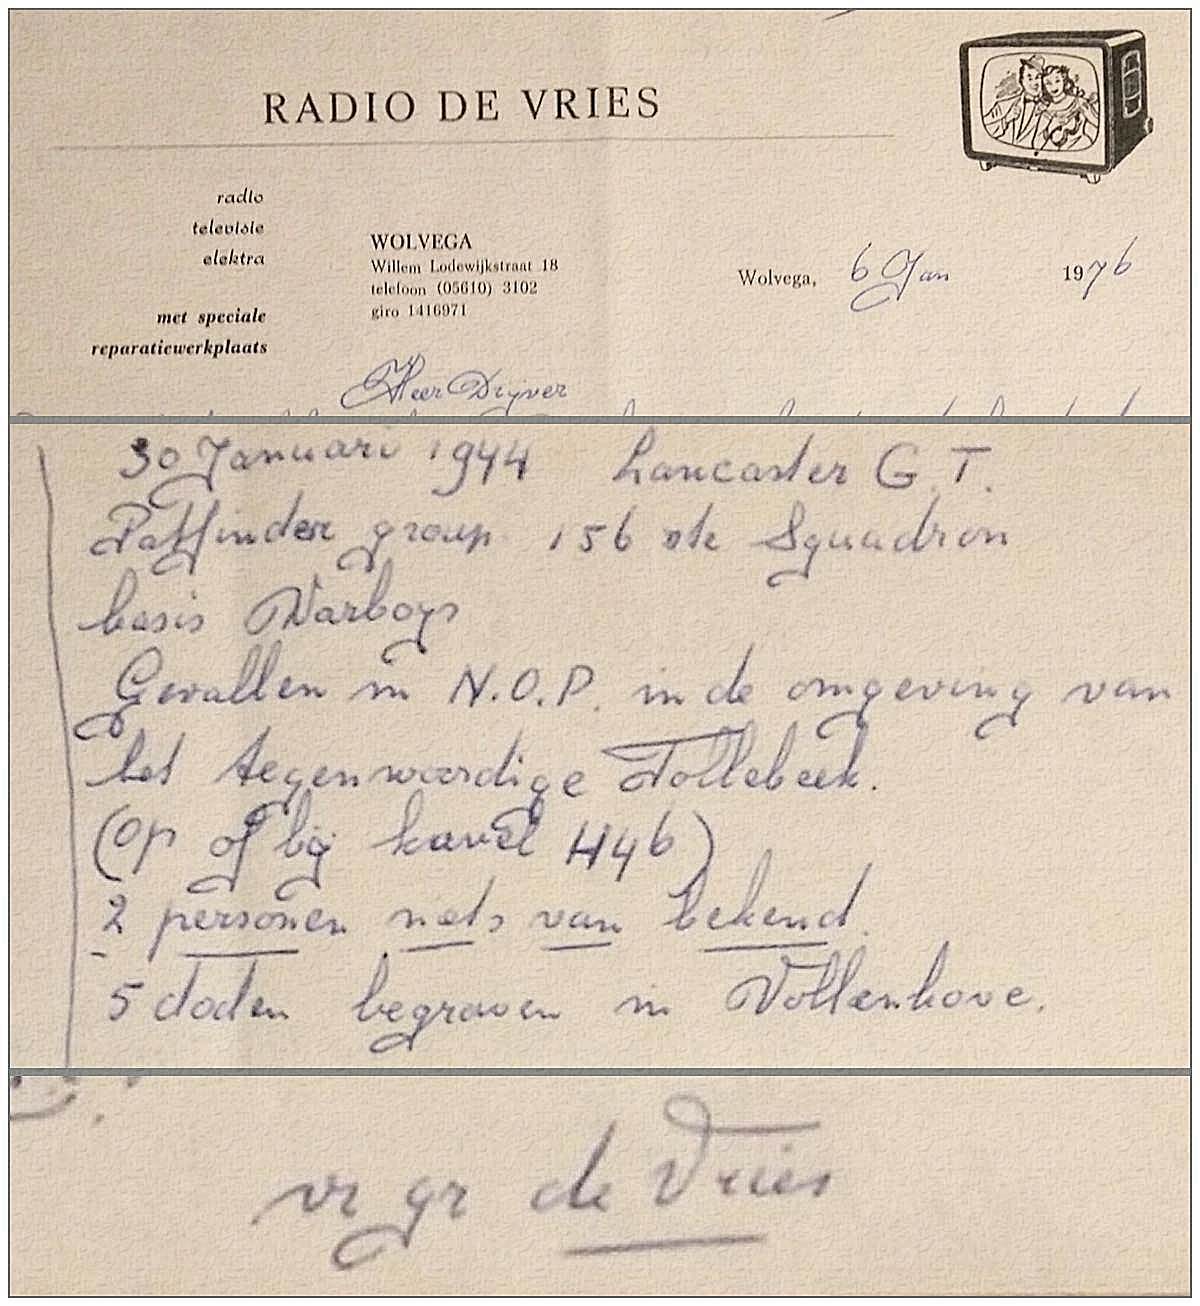 RADIO DE VRIES
radio
televisie
elektra
met speciale
reparatiewerkplaats
WOLVEGA
Willem Lodewijkstraat 18
telefoon (05610) 3102
giro 1416971
Wolvega, 6 Jan 1976
Heer Dryver
30 Januari 1944 Lancaster G.T.
Pathfinder group 156 ste Squadron
basis Warboys
Gevallen in N.O.P. in de omgeving van
het tegenwoordige Tollebeek.
(op of bij kavel H46)
2 personen niets van bekend.
5 doden begraven in Vollenhove.
vr gr de Vries